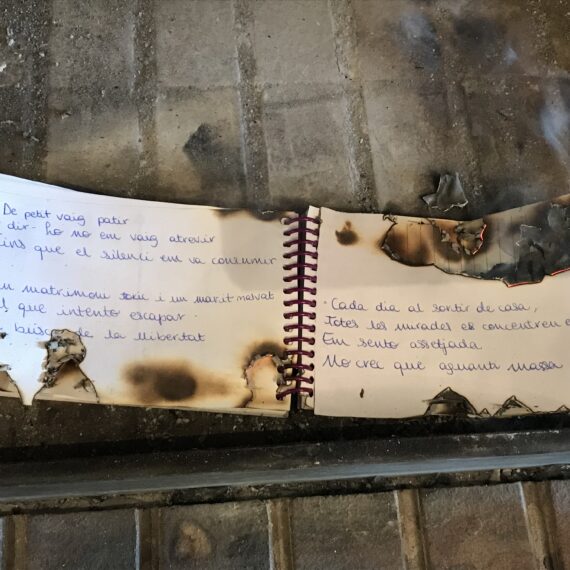 De petit vaig patir
dir-ho no em vaig atrevir
fins que el silenci em va consumir
un matrimoni tòxic i un marit malvat
que intento escapar.
busca de la llibertat
· Cada dia al sortir de casa,
Totes les mirades es concentren
Em sento assetjada
No crec que aguanti massa